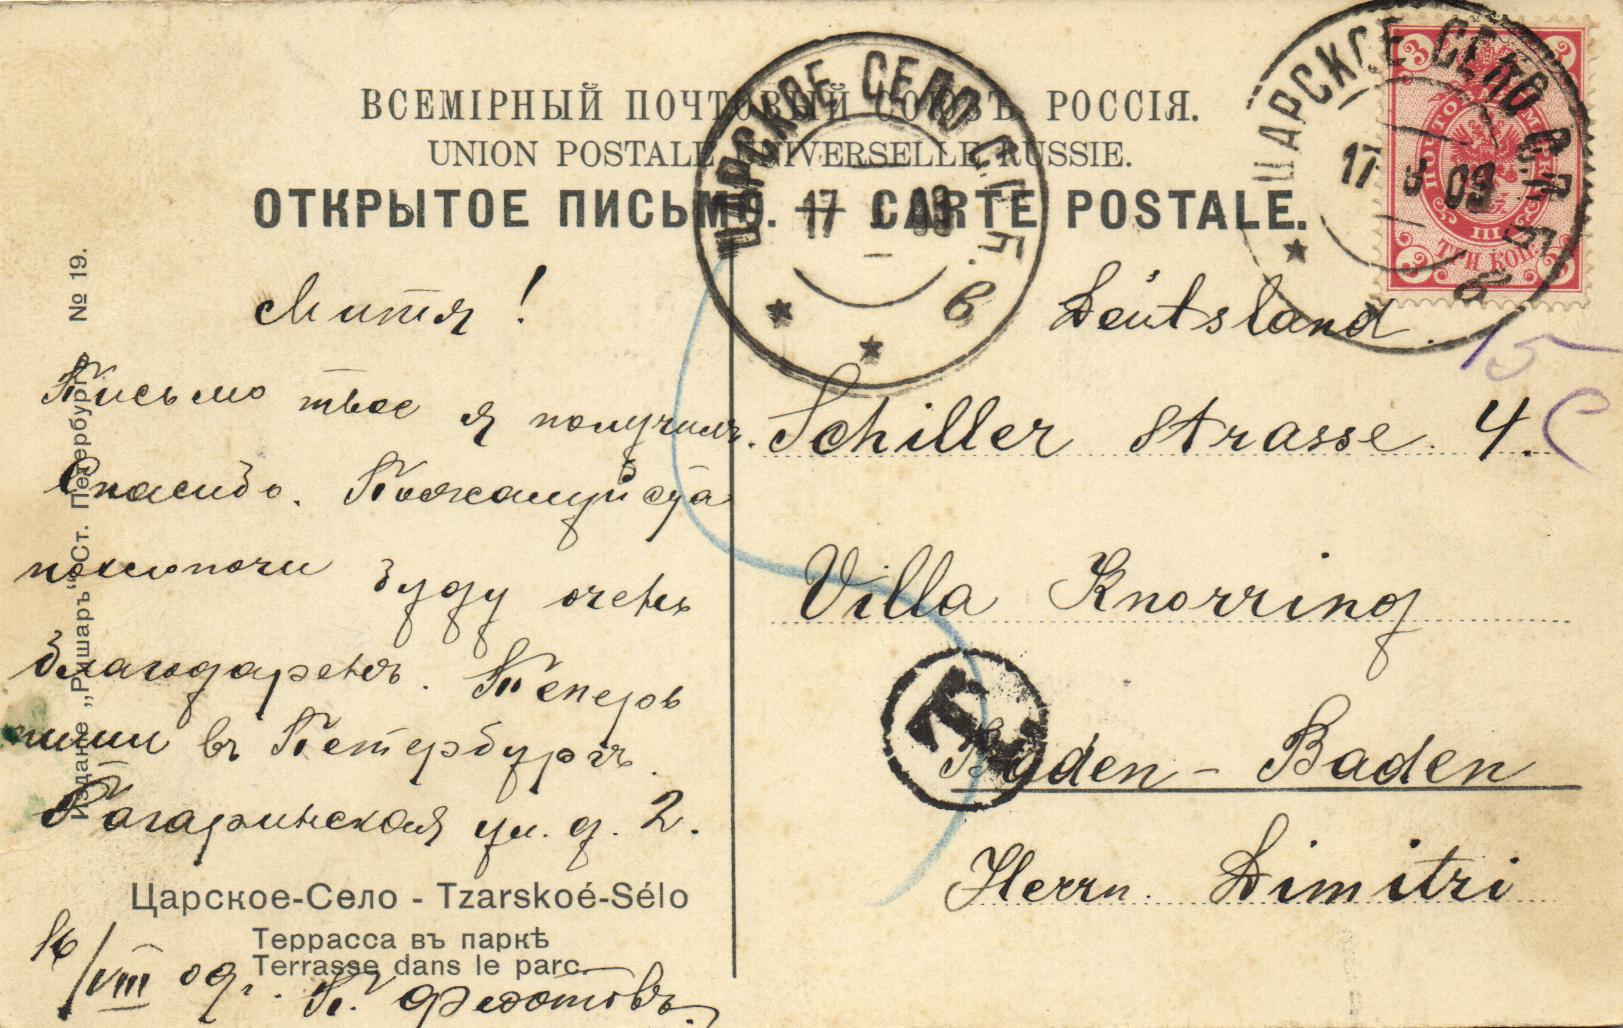 ВСЕМІРНЫЙ ПОЧТОВЫЙ СОЮЗЪ. РОССІЯ.
UNION POSTALE UNIVERSELLE RUSSIE.
ОТКРЫТОЕ ПИСЬМО. — CARTE POSTALE.
ЦАРСКОЕ СЕЛО С.П.Б. в
17 8 09
ЦАРСКОЕ СЕЛО
17 8 09
3 3 3 3
III
ТРИ КОП.
Изданіе „Ришаръ“ Ст. Петербургъ № 19.
Митя!
Письмо твое я получилъ.
Спасибо. Пожалуйста
похлопочи буду очень
благодаренъ. Теперь
пиши въ Петербургъ.
Гагаринская ул. д. 2.
Царское-Село - Tzarskoé-Sélo
Террасса въ паркѣ
Terrasse dans le parc.
16/VIII 09 г. П. Федотовъ.
Deutsland.
15 C
Schiller strasse. 4.
Villa Knorring
T
Baden - Baden
Herrn. Dimitri